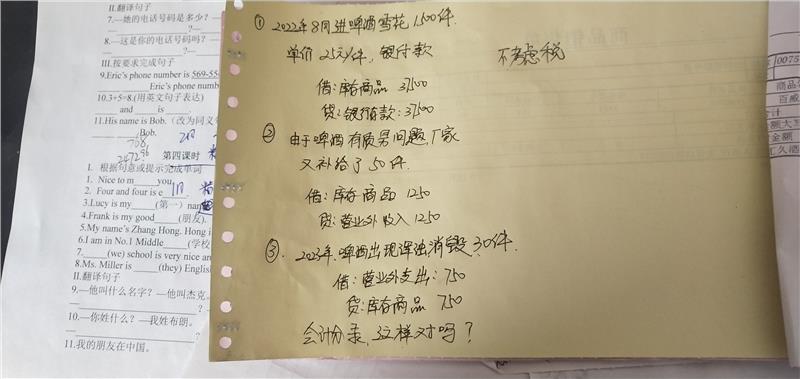 II.翻译句子
7.—她的电话号码是多少？
8.—这是你的电话号码吗？
III.按要求完成句子
9.Eric's phone number is 569-55
Eric's phone number
10.3+5=8.(用英文句子表达)
and is
11.His name is Bob. (改为同义句
Bob.
第四课时
I. 根据句意或提示完成单词
1. Nice to m____ you
2. Four and four is e
3.Lucy is my____(第一) nam
4.Frank is my good____(朋友).
5.My name's Zhang Hong. Hong i
6.I am in No.1 Middle____(学校
7.____(we) school is very nice an
8.Ms. Miller is____(they) Englis
II.翻译句子
9.—他叫什么名字？—他叫杰克。
10.—你姓什么？—我姓布朗。
11.我的朋友在中国。
① 2022年8月进啤酒雪花1500件.
单价25元/件, 银付款
不考虑税
借:库存商品 37500
贷:银行存款:37500
② 由于啤酒有质量问题,厂家
又补给了50件.
借:库存商品 1250
贷:营业外收入 1250
③. 2023年.啤酒出现浑浊消毁30件.
借:营业外支出:750
贷:库存商品 750
会计分录,这样对吗?
0075
商品
百威
计
额大写
金额